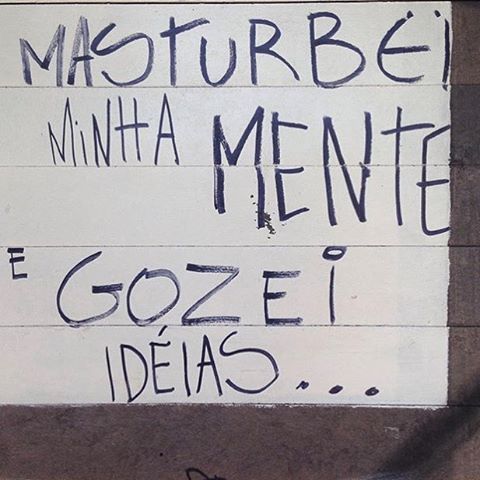 MASTURBEÏ
MINHA MENTE
E GOZEI
IDÉIAS...